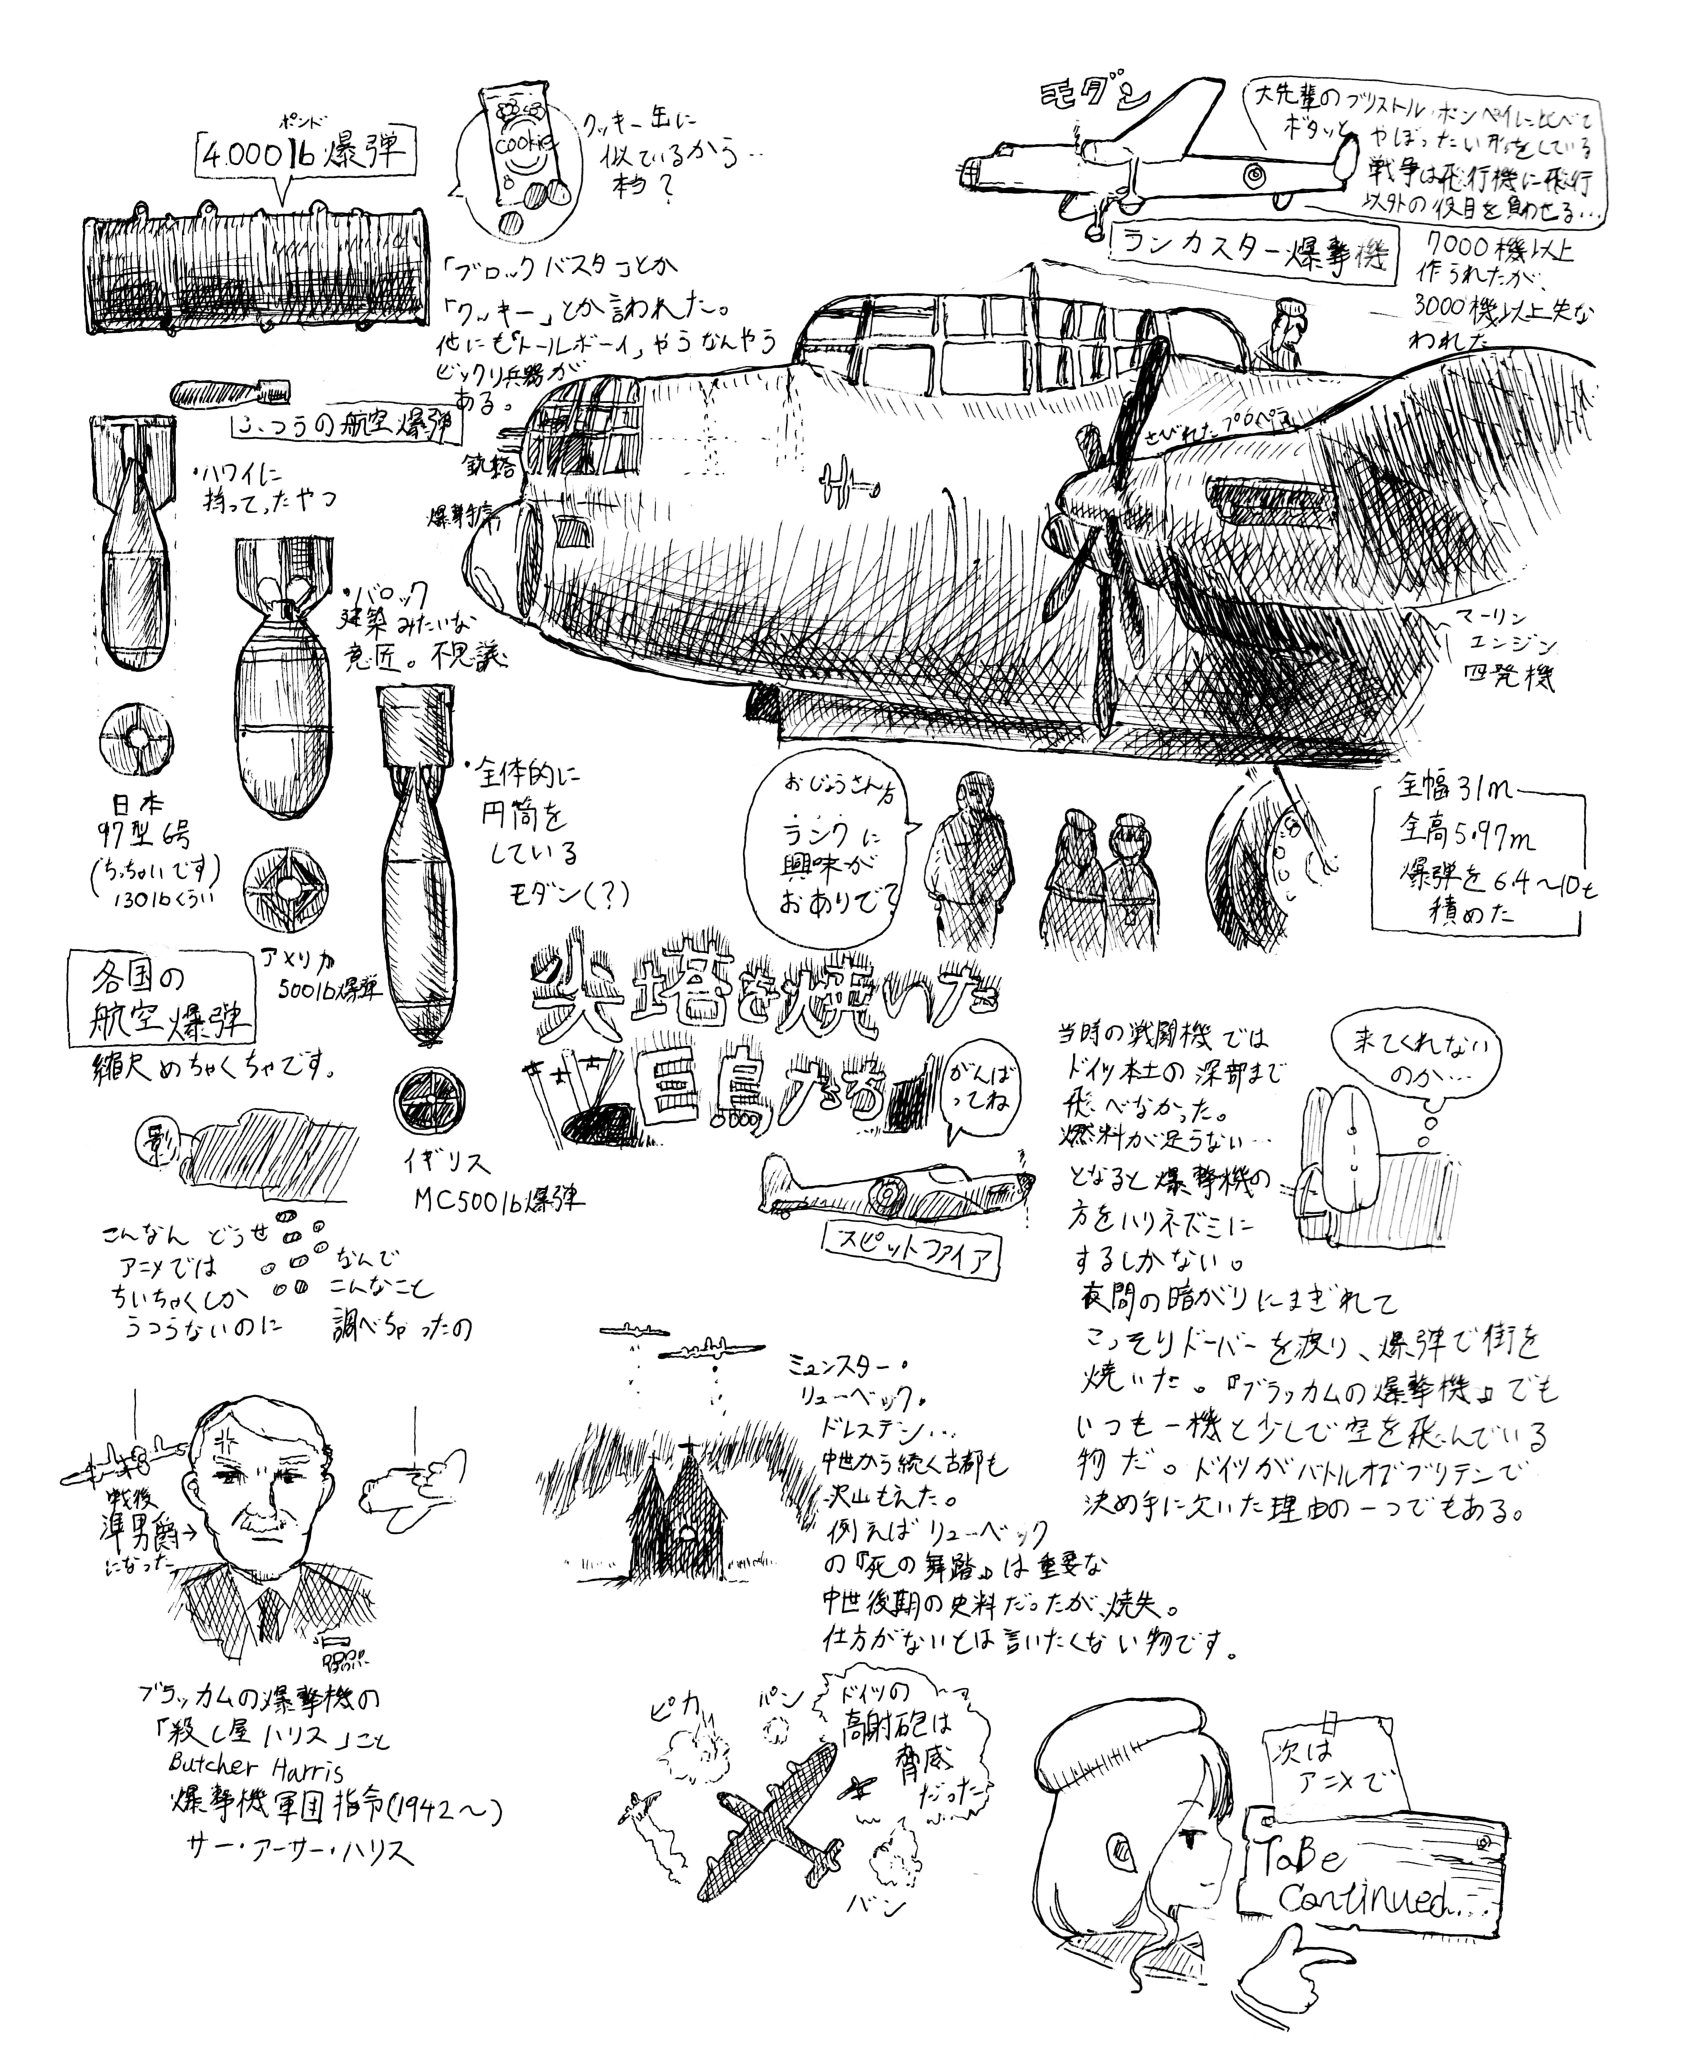 ポンド
4.000lb爆弾
cookie
クッキー缶に
似ているから…
本当？
「ブロックバスター」とか
「クッキー」とか言われた。
他にも「トールボーイ」やらなんやら
ビックリ兵器が
ある。
ふつうの航空爆弾
・ハワイに
持ってったやつ
・バロック
建築みたいな
意匠。不思議
・全体的に
円筒を
している
モダン(？)
日本
97型6号
(ちっちゃいです)
130lbくらい
アメリカ
500lb爆弾
イギリス
MC500lb爆弾
各国の
航空爆弾
縮尺めちゃくちゃです。
影
こんなん どうせ
アニメでは
ちいちゃくしか
うつらないのに
なんで
こんなこと
調べちゃったの
モダン
大先輩のブリストル・ボンベイに比べて
ボタッと やぼったい形をしている
戦争は飛行機に飛行
以外の役目を負わせる…
ランカスター爆撃機
7000機以上
作られたが、
3000機以上失な
われた
銃塔
爆撃席
さびれたプロペラ
マーリン
エンジン
四発機
おじょうさん方
ランクに
興味が
おありで？
全幅31m
全高5.97m
爆弾を6.4〜10t
積めた
尖塔を焼いた
目鳥たち
がんば
ってね
スピットファイア
当時の戦闘機では
ドイツ本土の深部まで
飛べなかった。
燃料が足らない…
となると爆撃機の
方をハリネズミに
するしかない。
夜間の暗がりにまぎれて
こっそりドーバーを渡り、爆弾で街を
焼いた。『ブラッカムの爆撃機』でも
いつも一機と少しで空を飛んでいる
物だ。ドイツがバトルオブブリテンで
決め手に欠いた理由の一つでもある。
来てくれない
のか…
ミュンスター・
リューベック・
ドレスデン…
中世から続く古都も
沢山もえた。
例えばリューベック
の『死の舞踏』は重要な
中世後期の史料だったが、焼失。
仕方がないとは言いたくない物です。
戦後
準男爵→
になった
ブラッカムの爆撃機の
「殺し屋ハリス」こと
Butcher Harris
爆撃機軍団指令(1942〜)
サー・アーサー・ハリス
ピカ
パン
ドイツの
高射砲は
脅威
だった
バン
次は
アニメで
ToBe
Continued...